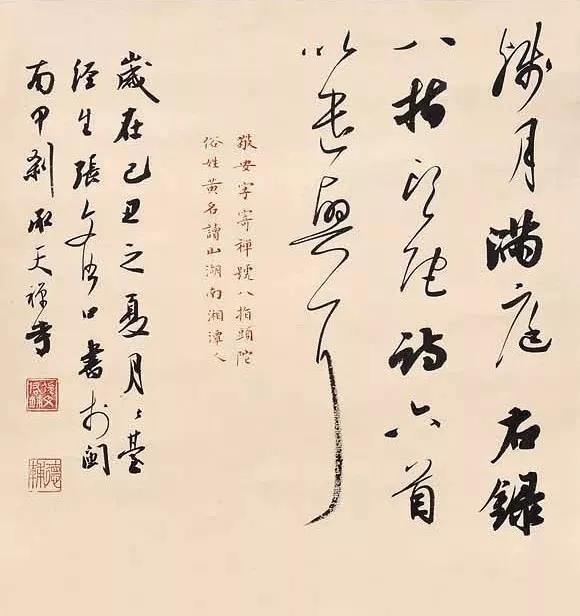 月滿庭 右錄
八指頭陀詩六首
以遣興耳
敬安字寄禪號八指頭陀
俗姓黃名讀山湖南湘潭人
歲在己丑之夏月〻臺
經生張文書於閩
南甲剎承天禪寺